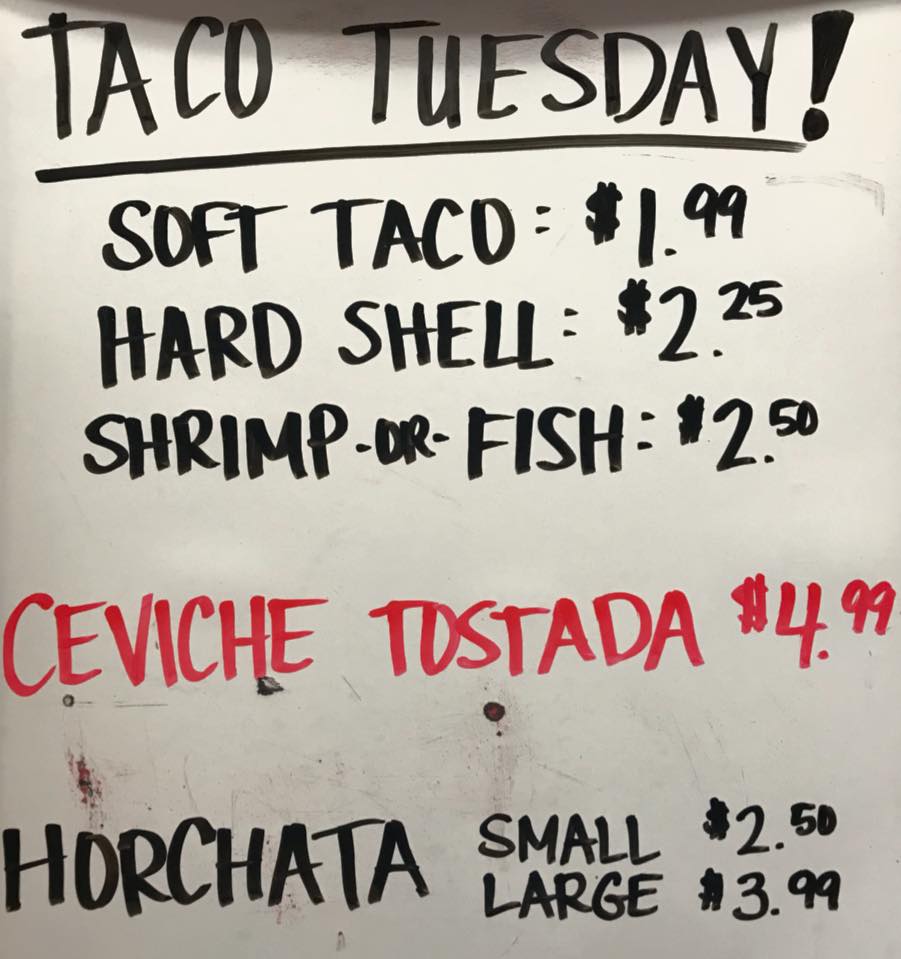 TACO TUESDAY!
SOFT TACO: $1.99
HARD SHELL: $2.25
SHRIMP -OR- FISH: $2.50
CEVICHE TOSTADA $4.99
HORCHATA SMALL $2.50
LARGE $3.99